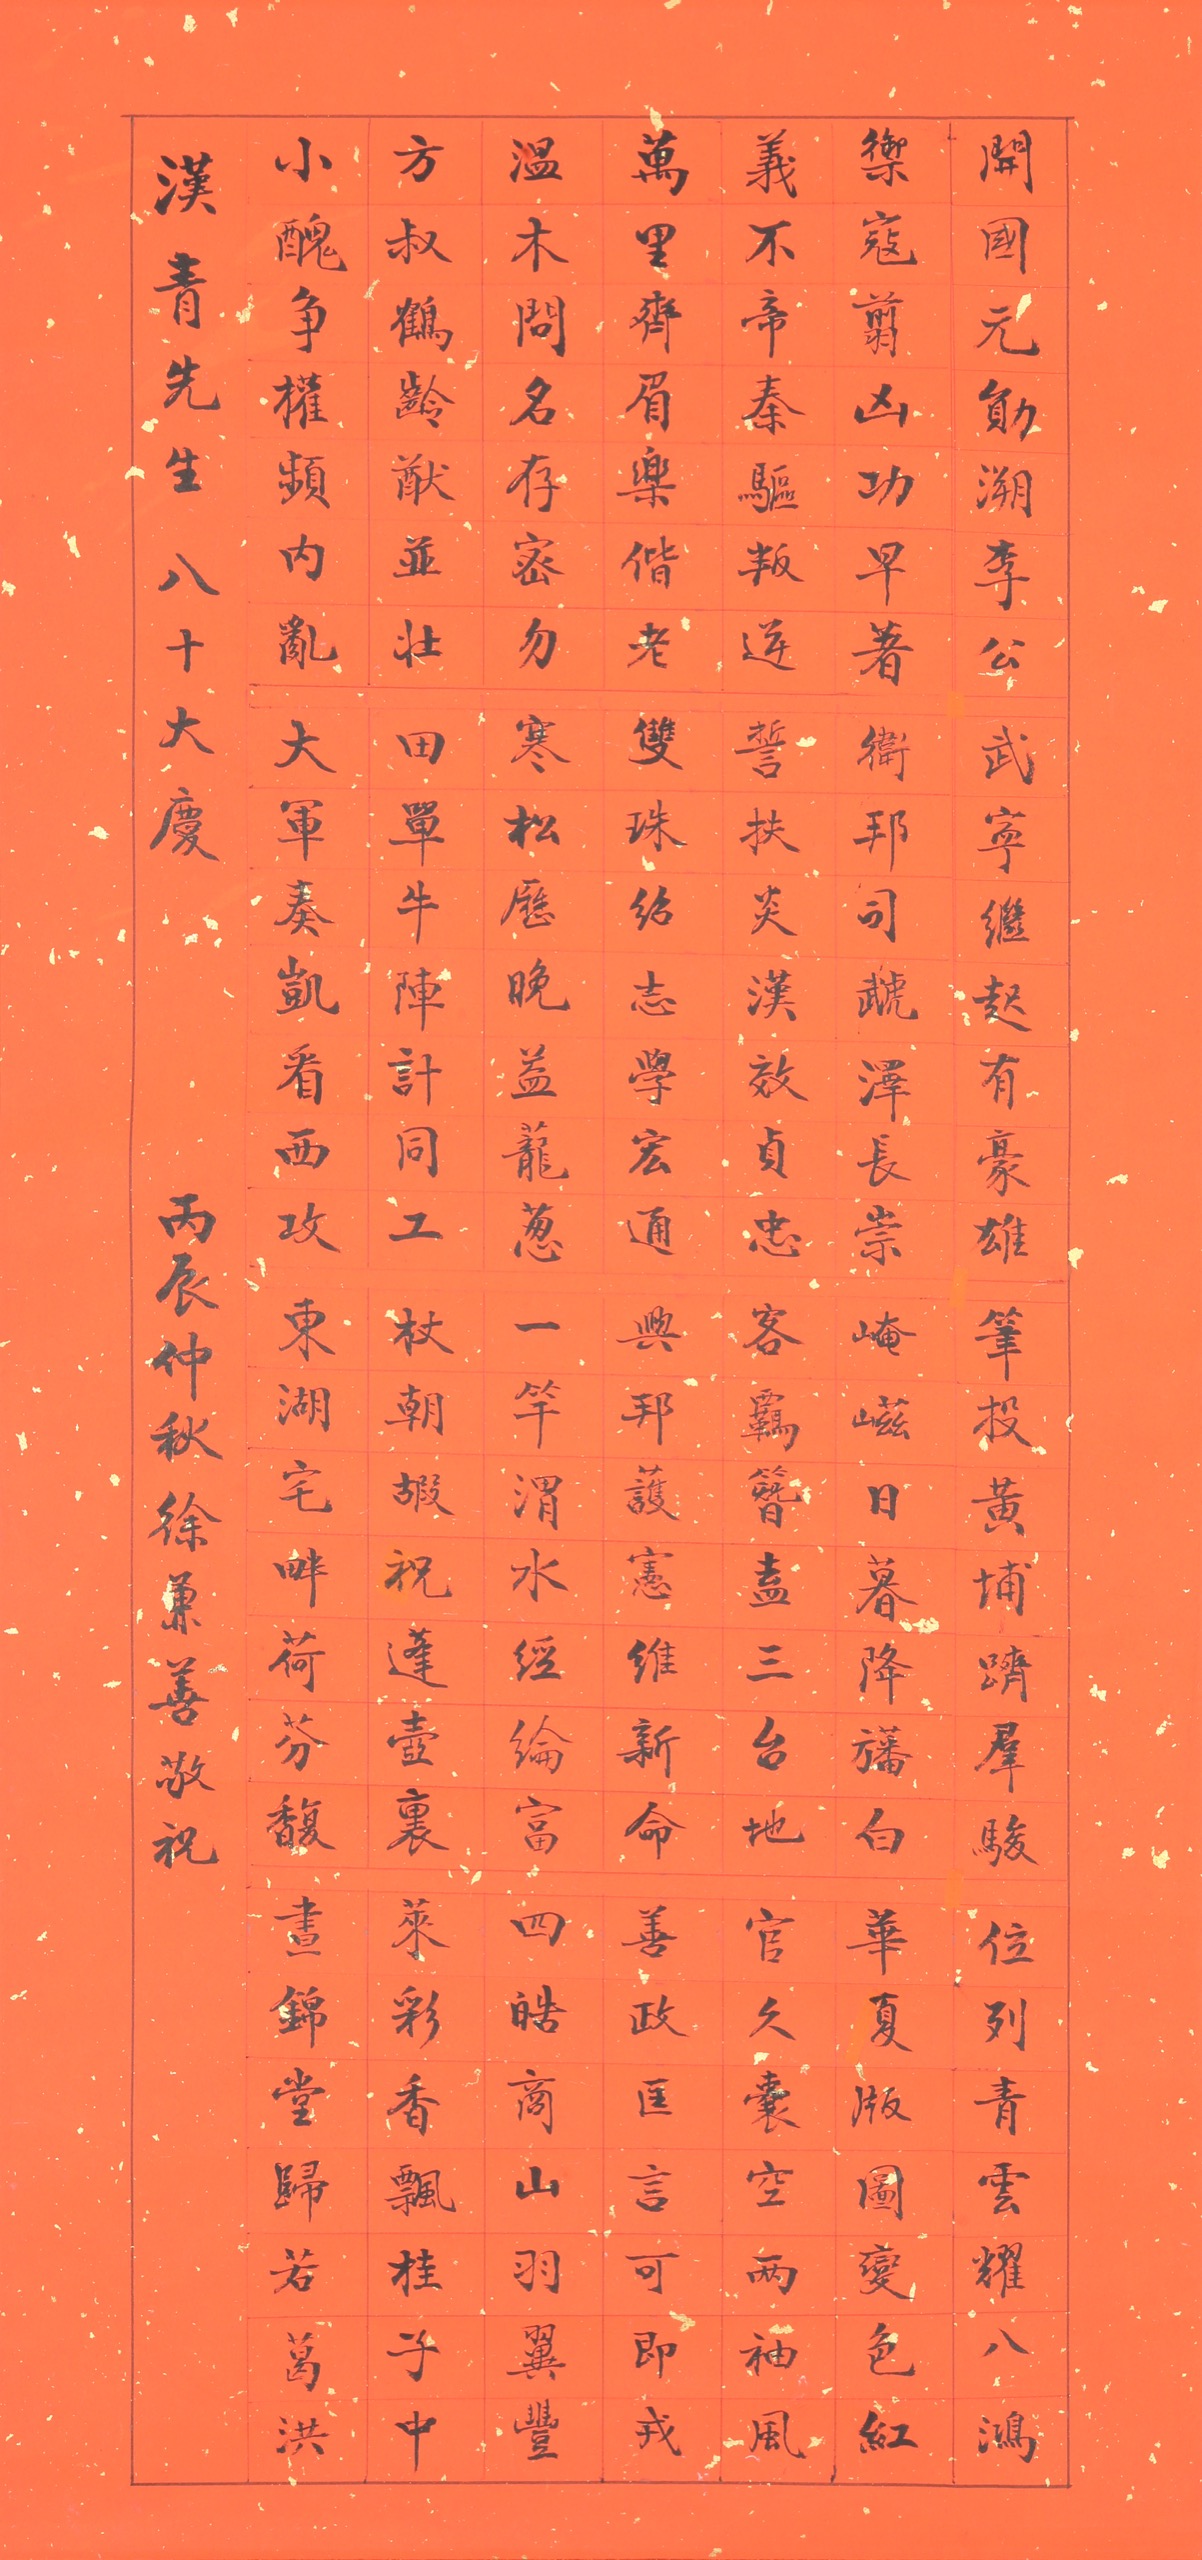 開國元勛溯李公武寧繼起有豪雄筆投黃埔躋羣駿位列青雲耀八鴻
禦寇翦凶功早著衛邦司虢澤長崇崦嵫日暮降旛白華夏版圖變色紅
義不帝秦驅叛逆誓扶炎漢效貞忠客羈簪盍三台地官久囊空兩袖風
萬里齊眉樂偕老雙珠紹志學宏通興邦護憲維新命善政匡言可即戎
溫木問名存密勿寒松歷晚益蘢葱一竿渭水經綸富四皓商山羽翼豐
方叔鶴齡猷並壯田單牛陣計同工杖朝嘏祝蓬壺裏萊彩香飄桂子中
小醜争權頻内亂大軍奏凱看西攻東湖宅畔荷芬馥晝錦堂歸若葛洪
漢青先生八十大慶 丙辰仲秋徐兼善敬祝